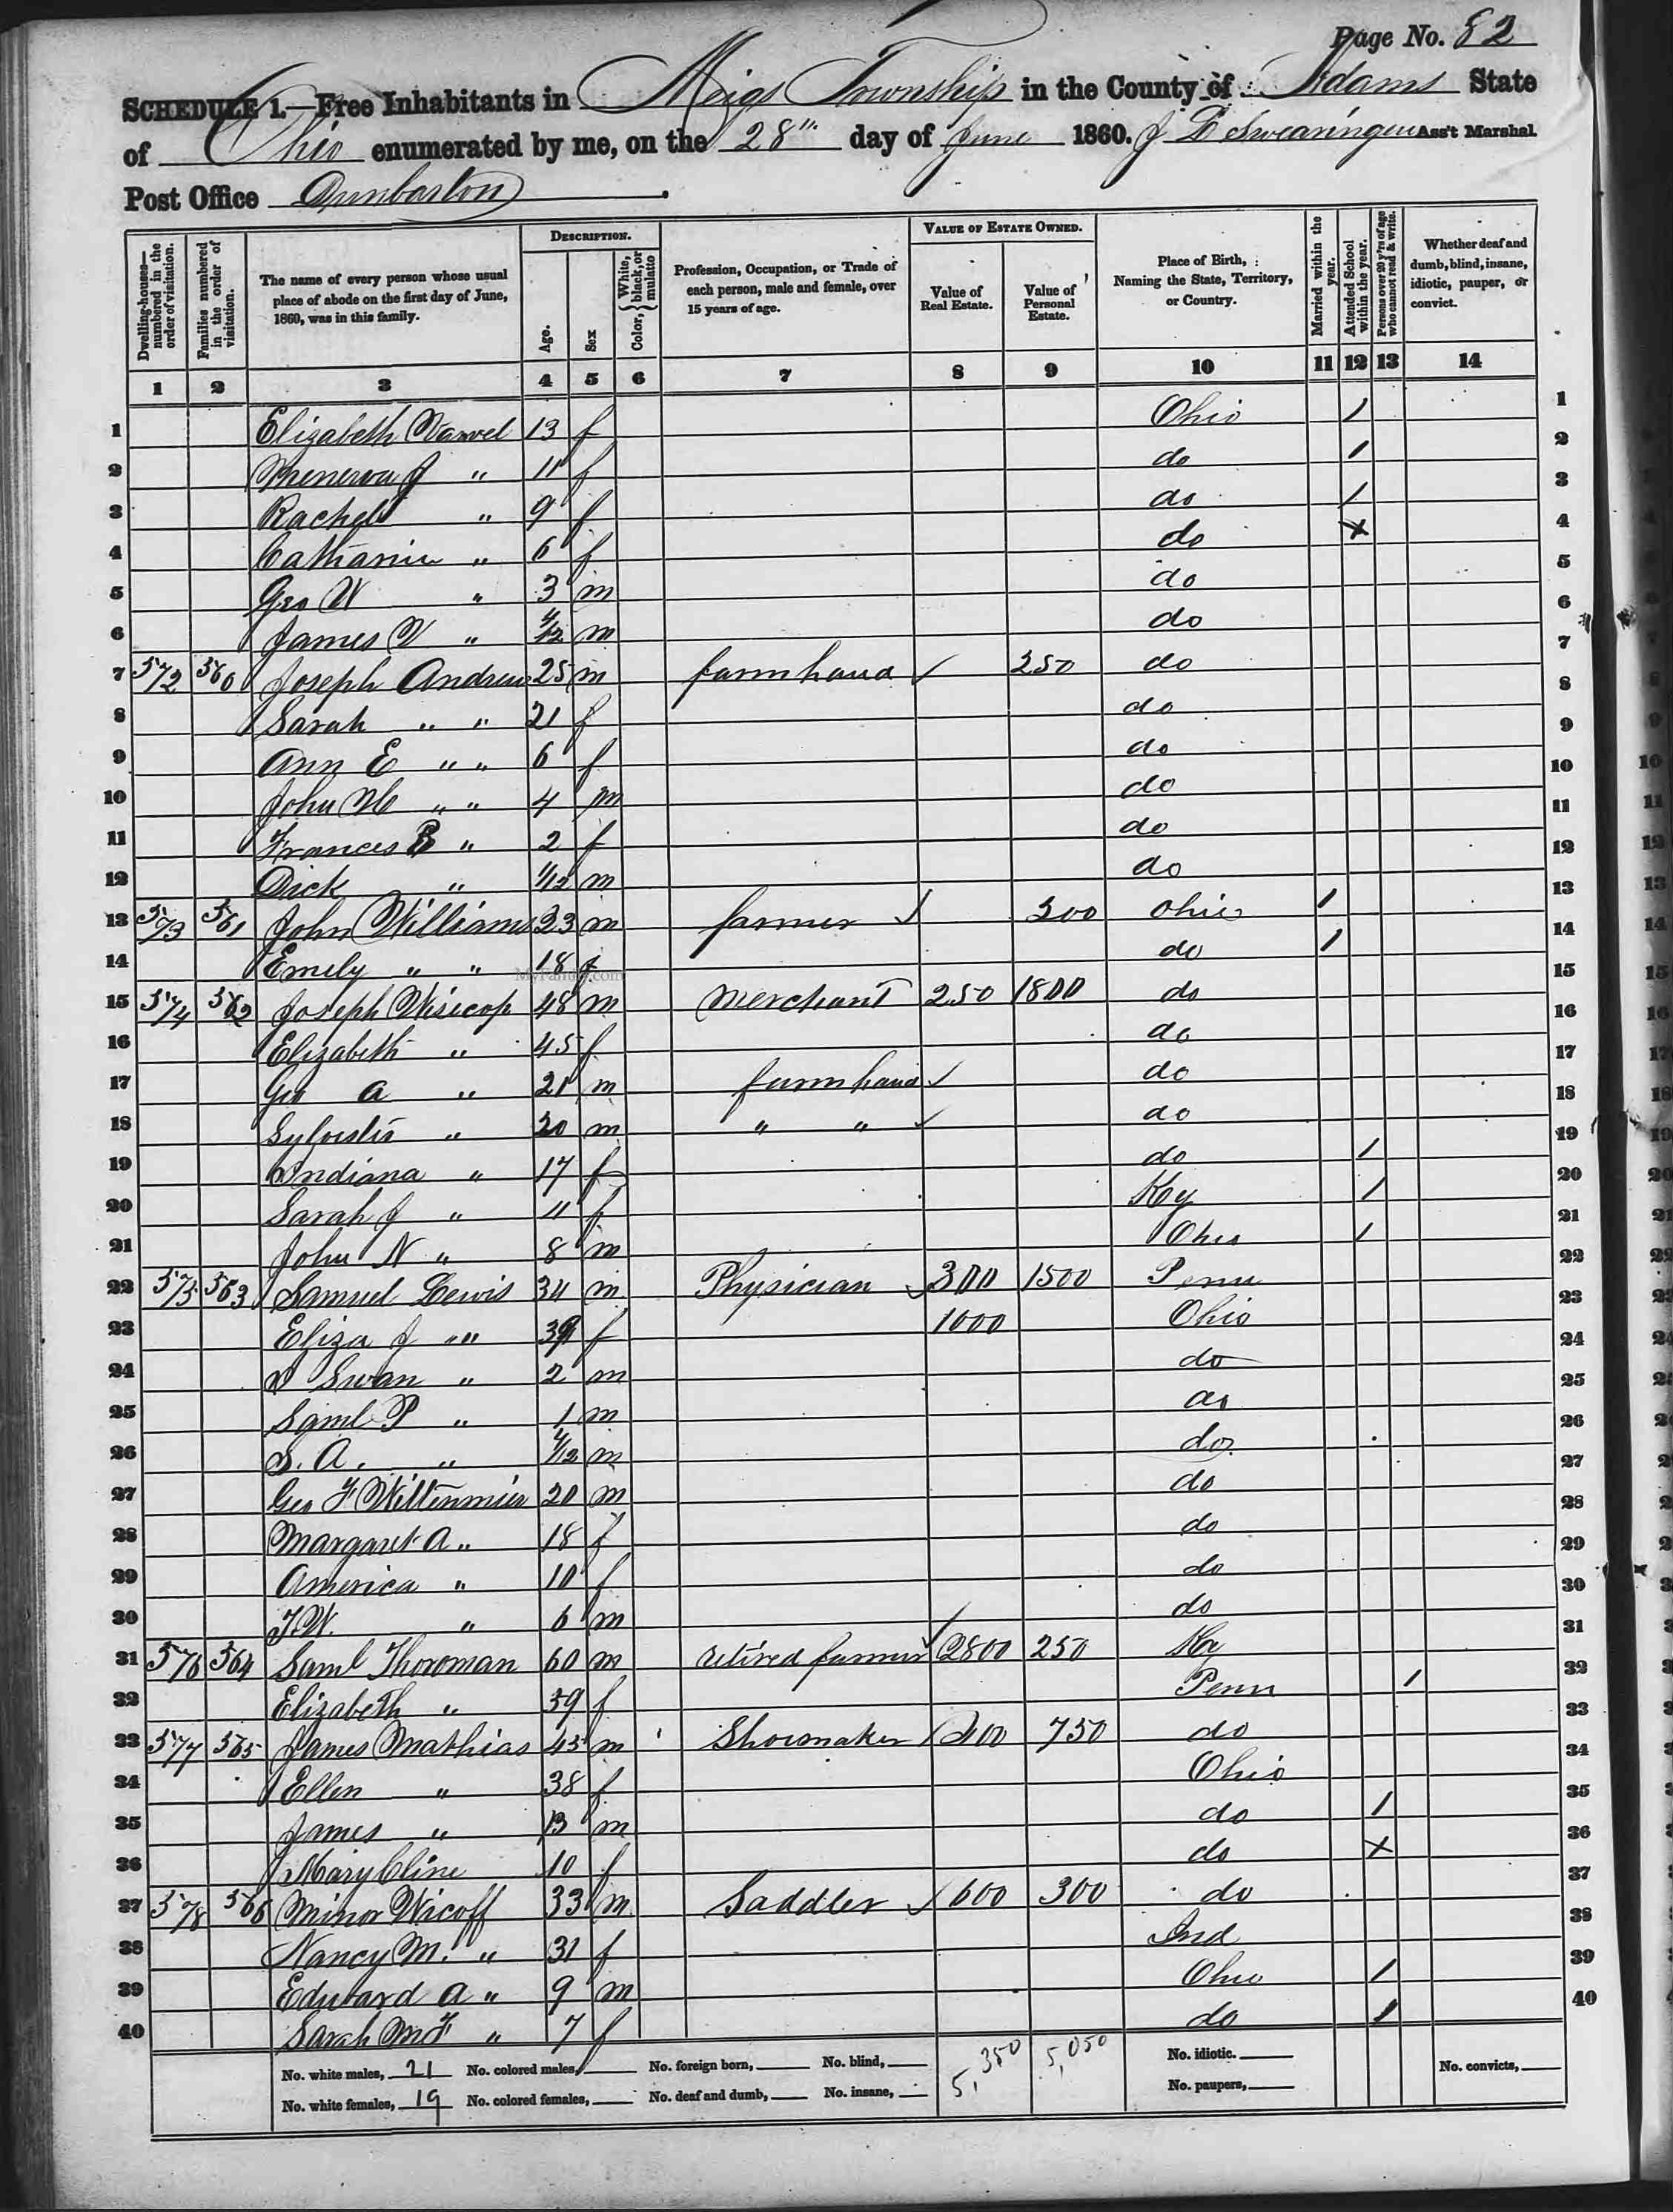 Page No. 82
SCHEDULE 1.—Free Inhabitants in Meigs Township in the County of Adams State
of Ohio enumerated by me, on the 28th day of June 1860. J D Swearingen Ass't Marshal.
Post Office Dunbarton.
Dwelling-houses—numbered in the order of visitation.
Families numbered in the order of visitation.
The name of every person whose usual place of abode on the first day of June, 1860, was in this family.
DESCRIPTION.
Age.
Sex
Color, { White, black, or mulatto
Profession, Occupation, or Trade of each person, male and female, over 15 years of age.
VALUE OF ESTATE OWNED.
Value of Real Estate.
Value of Personal Estate.
Place of Birth, Naming the State, Territory, or Country.
Married within the year.
Attended School within the year.
Persons over 20 y'rs of age who cannot read & write.
Whether deaf and dumb, blind, insane, idiotic, pauper, or convict.
1 2 3 4 5 6 7 8 9 10 11 12 13 14
1 Elizabeth 13 f Ohio / 1
2 Menerva J " 11 f do / 2
3 Rachel " 9 f do / 3
4 Catharine " 6 f do x 4
5 Geo W " 3 m do 5
6 James V " /12 m do 6
7 572 560 Joseph Andrew 25 m farm hand ✓ 250 do 7
8 Sarah " " 21 f do 8
9 Ann E " " 6 f do 9
10 John M " " 4 m do 10
11 Frances B " 2 f do 11
12 Dick " 1/12 m do 12
13 573 561 John Williams 33 m farmer ✓ 300 Ohio / 13
14 Emely " " 18 f do / 14
MyFamily.com
15 574 562 Joseph Wisicop 48 m Merchant 250 1800 do 15
16 Elizabeth " 45 f do 16
17 Geo A " 21 m farm hand ✓ do 17
18 Sylvester " 20 m " " ✓ do 18
19 Indiana " 17 f do / 19
20 Sarah J " 11 f Ky / 20
21 John N " 8 m Ohio / 21
22 575 563 Samuel Lewis 34 m Physician ✓ 300 1500 Penn 22
23 Eliza J " " 39 f 1000 Ohio 23
24 Swan " 2 m do 24
25 Saml P " 1 m do 25
26 S. A. " /12 m do 26
27 Geo F Wittenmier 20 m do 27
28 Margaret A " 18 f do 28
29 America " 10 f do 29
30 J.W. " 6 m do 30
31 576 564 Saml Thoroman 60 m retired farmer ✓ 2800 250 Ky 31
32 Elizabeth " 59 f Penn / 32
33 577 565 James Mathias 45 m Shoemaker 400 750 do 33
34 Ellen " 38 f Ohio 34
35 James " 13 m do / 35
36 Mary Cline 10 f do x 36
37 578 566 Minor Wicoff 33 m Saddler ✓ 600 300 do 37
38 Nancy M. " 31 f Ind 38
39 Edward A " 9 m Ohio / 39
40 Sarah M F " 7 f do / 40
No. white males, 21 No. colored males, No. foreign born, No. blind, 5,350 5,050 No. idiotic. No. convicts,
No. white females, 19 No. colored females, No. deaf and dumb, No. insane, No. paupers,